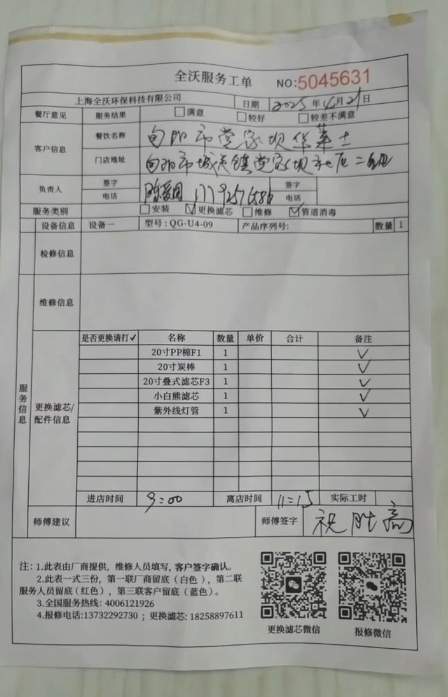 全沃服务工单 NO:5045631
上海全沃环保科技有限公司 日期 2025年4月21日
餐厅意见 服务结果 满意 较好 较差不满意
客户信息 餐饮名称 旬阳市党家坝华莱士
门店地址 旬阳市城关镇党家坝社区二组
负责人 签字 签字
电话 电话
服务类别 安装 更换滤芯 维修 管道消毒
设备信息 设备一 型号:QG-U4-09 产品序列号: 数量 1
检修信息
维修信息
服务信息
更换滤芯/配件信息
是否更换请打✓ 名称 数量 单价 合计 备注
20寸PP棉F1 1 ✓
20寸炭棒 1 ✓
20寸叠式滤芯F3 1 ✓
小白熊滤芯 1 ✓
紫外线灯管 1 ✓
进店时间 9:00 离店时间 11:15 实际工时
师傅建议 师傅签字 祝胜高
注: 1.此表由厂商提供, 维修人员填写, 客户签字确认。
2.此表一式三份, 第一联厂商留底(白色), 第二联
服务人员留底(红色), 第三联客户留底(蓝色)。
3.全国服务热线: 4006121926
4.报修电话:13732292730; 更换滤芯: 18258897611
更换滤芯微信 报修微信